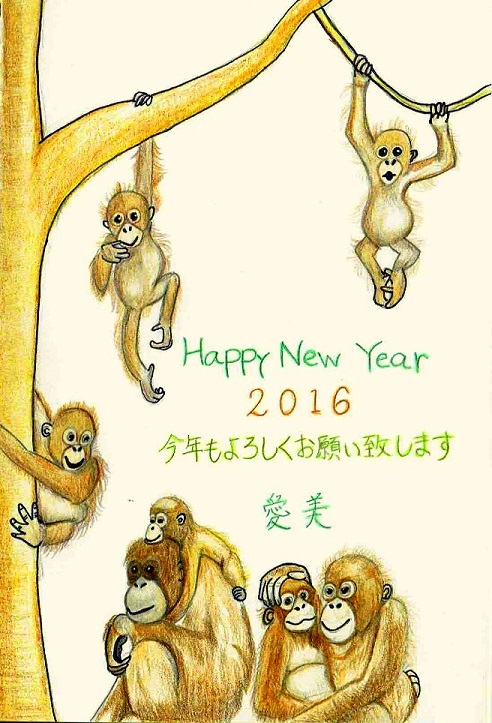 Happy New Year
2016
今年もよろしくお願い致します
愛美